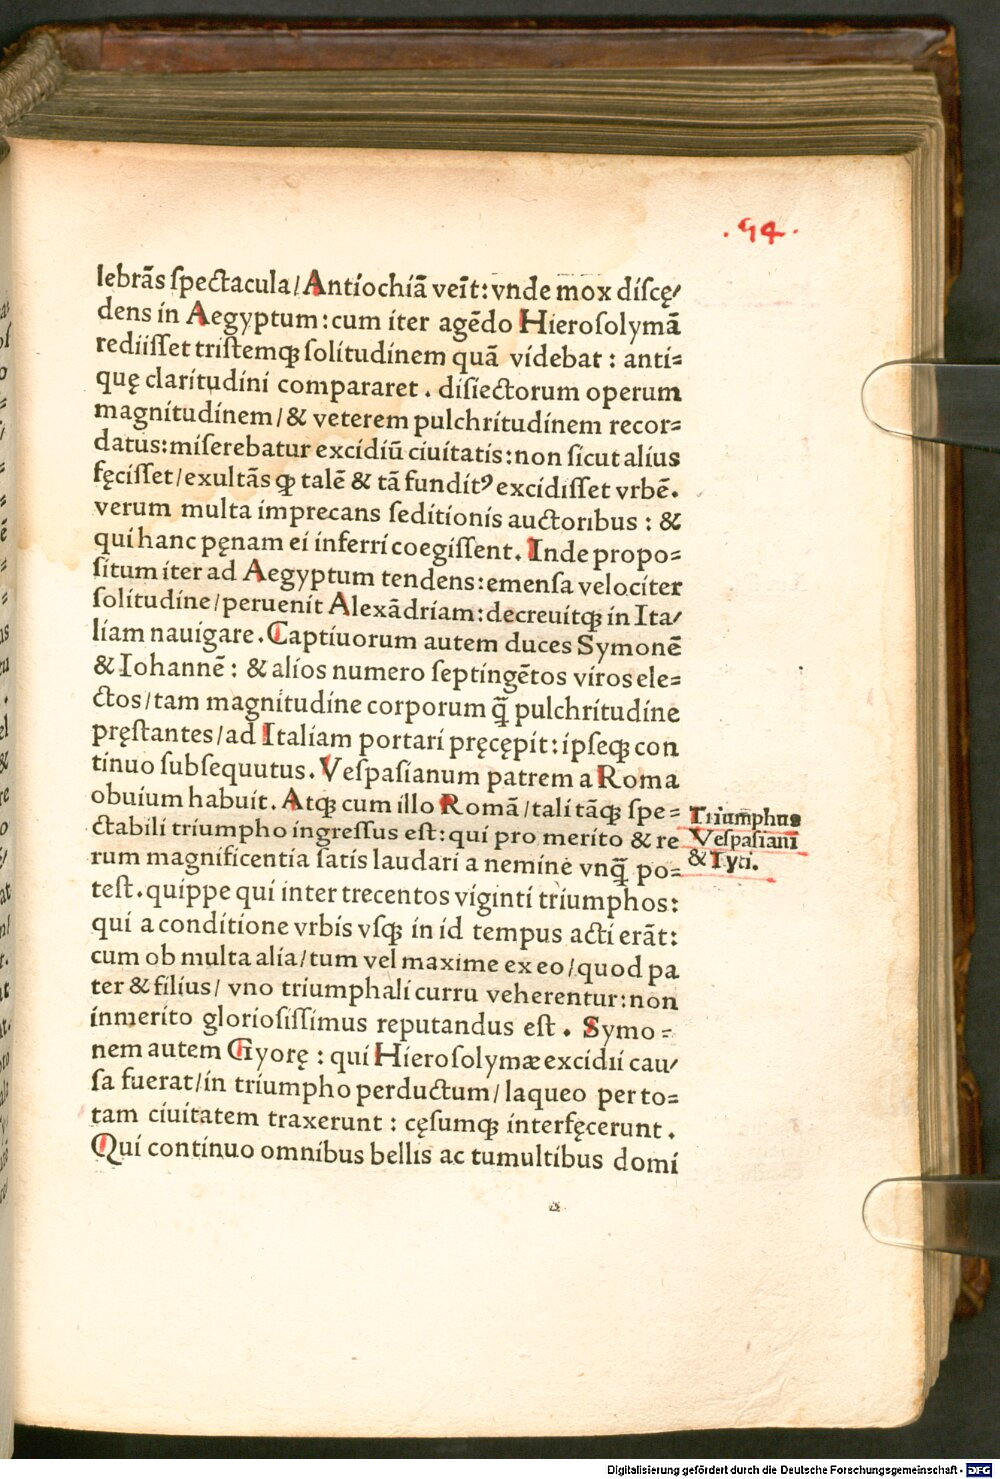 .54.
lebrãs ſpectacula/Antiochiã veĩt:vnde mox diſcę/
dens in Aegyptum:cum iter agẽdo Hieroſolymã
rediiſſet triſtemꝙ ſolitudinem quã videbat : anti=
quę claritudini compararet . diſiectorum operum
magnitudinem/& veterem pulchritudinem recor=
datus:miſerebatur excidiũ ciuitatis:non ſicut alius
fęciſſet/exultãs ꝙ talẽ & tã funditꝰ excidiſſet vrbẽ.
verum multa imprecans ſeditionis auctoribus : &
qui hanc pęnam ei inferri coegiſſent. Inde propo=
ſitum iter ad Aegyptum tendens:emenſa velociter
ſolitudine/peruenit Alexãdriam:decreuitꝙ in Ita/
liam nauigare.Captiuorum autem duces Symonẽ
& Iohannẽ : & alios numero ſeptingẽtos viros ele=
ctos/tam magnitudine corporum q̃ pulchritudine
pręſtantes/ad Italiam portari pręcępit:ipſeꝙ con
tinuo ſubſequutus.Veſpaſianum patrem a Roma
obuium habuit. Atꝙ cum illo Romã/tali tãꝙ ſpe=
ctabili triumpho ingreſſus eſt:qui pro merito & re
rum magnificentia ſatis laudari a nemine vnq̃ po=
teſt.quippe qui inter trecentos viginti triumphos:
qui a conditione vrbis vſꝙ in id tempus acti erãt:
cum ob multa alia/tum vel maxime ex eo/quod pa
ter & filius/ vno triumphali curru veherentur:non
inmerito glorioſiſſimus reputandus eſt . Symo=
nem autem Gyorę : qui Hieroſolymæ excidii cau/
ſa fuerat/in triumpho perductum/laqueo per to=
tam ciuitatem traxerunt : cęſumꝙ interfęcerunt .
Qui continuo omnibus bellis ac tumultibus domi
Triumphus
Veſpaſiani
& Tyti.
Digitalisierung gefördert durch die Deutsche Forschungsgemeinschaft - DFG